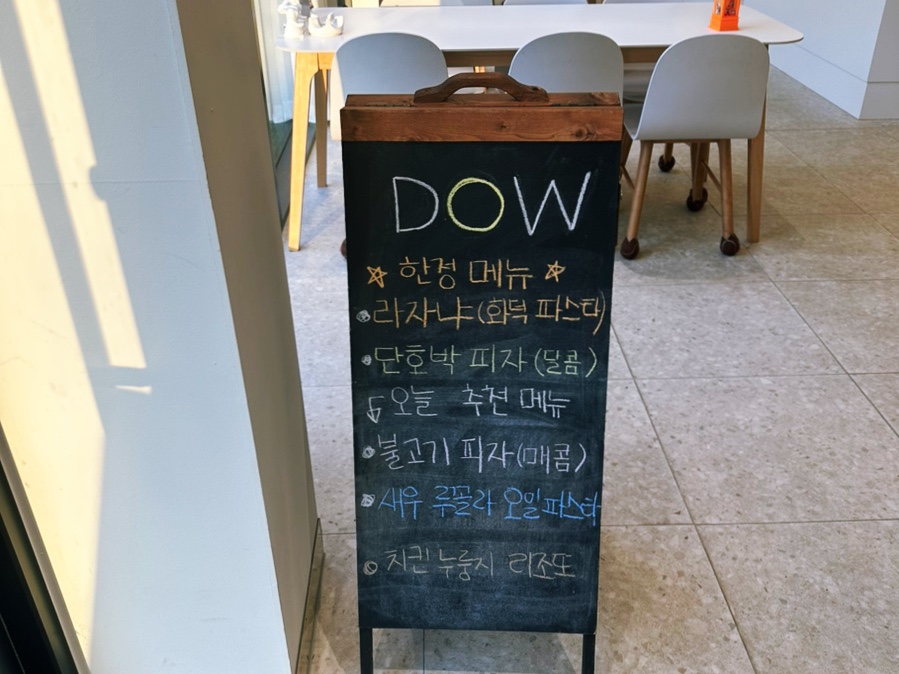 DOW
☆ 한정 메뉴 ☆
• 라자냐 (화덕 파스타)
• 단호박 피자 (달콤)
오늘 추천 메뉴
• 불고기 피자 (매콤)
• 새우 루꼴라 오일파스타
• 치킨 누룽지 리조또